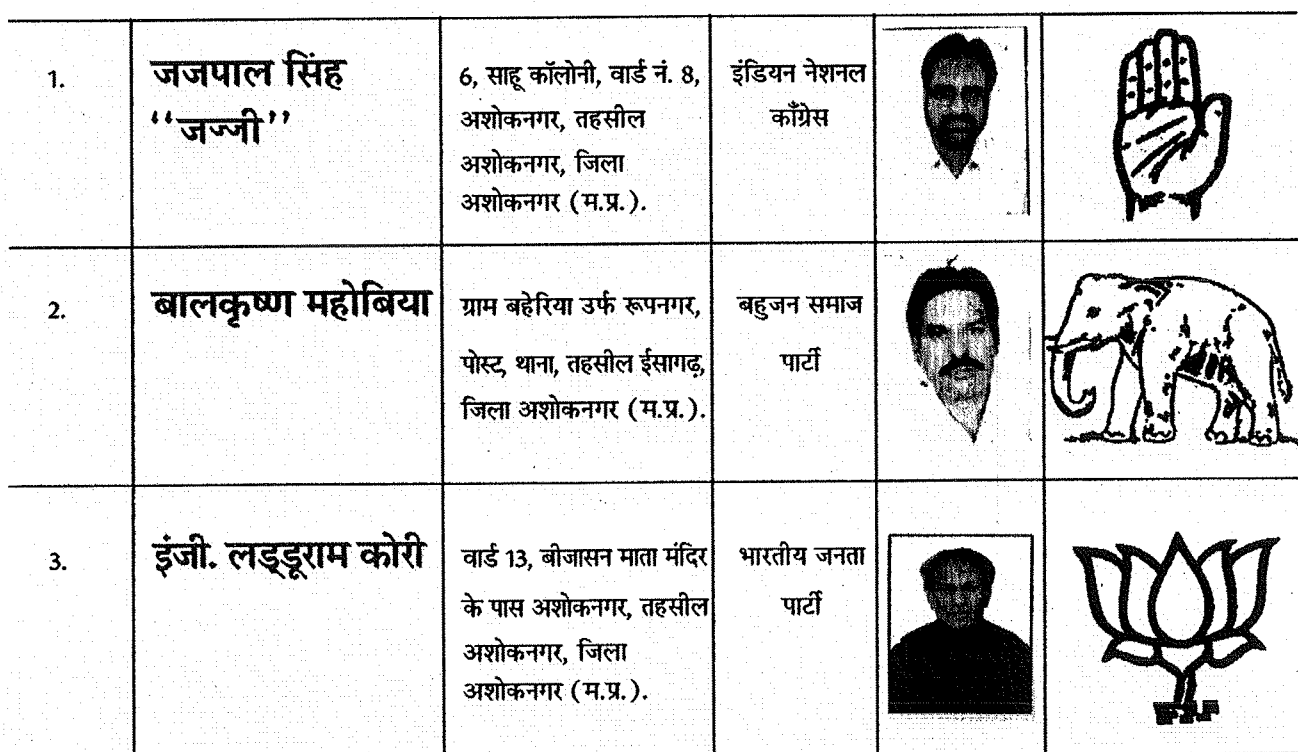 1.
जजपाल सिंह
‘‘जज्जी’’
6, साहू कॉलोनी, वार्ड नं. 8,
अशोकनगर, तहसील
अशोकनगर, जिला
अशोकनगर (म.प्र.).
इंडियन नेशनल
काँग्रेस
2.
बालकृष्ण महोबिया
ग्राम बहेरिया उर्फ रूपनगर,
पोस्ट, थाना, तहसील ईसागढ़,
जिला अशोकनगर (म.प्र.).
बहुजन समाज
पार्टी
3.
इंजी. लड्डूराम कोरी
वार्ड 13, बीजासन माता मंदिर
के पास अशोकनगर, तहसील
अशोकनगर, जिला
अशोकनगर (म.प्र.).
भारतीय जनता
पार्टी